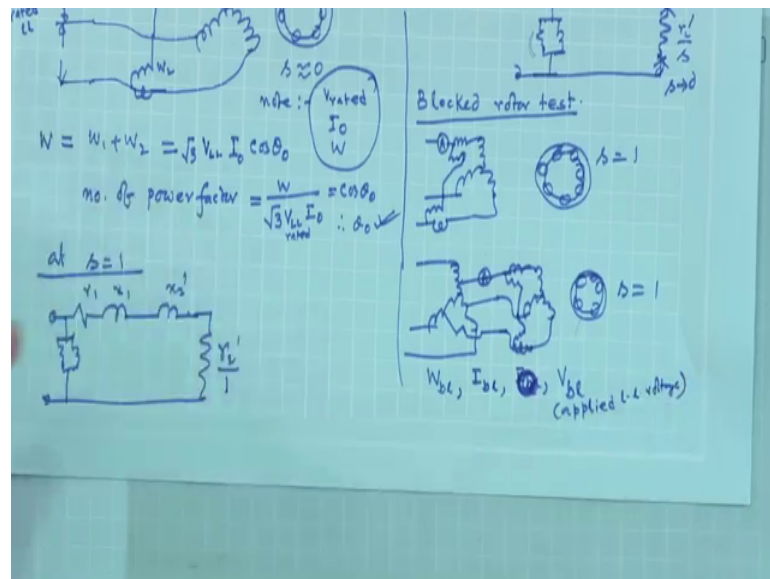 rated
W₂
s≈0
note :- Vrated
I₀
W
W = W₁ + W₂ = √3 V_LL I₀ cosθ₀
no. of power factor = W / √3 V_LL rated I₀ = cosθ₀
∴ θ₀ ✓
at s = 1
r₁ x₁ x₂'
r₂' / 1
r₂' / s
s→0
Blocked rotor test.
A
s = 1
A
s = 1
W_bl, I_bl, V_bl
(applied L-L voltage)